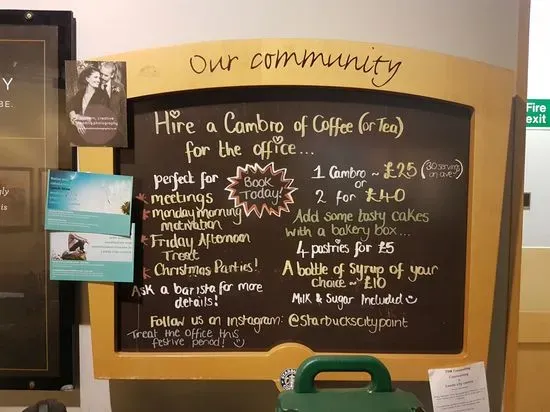 our community
Hire a Cambro of Coffee (or Tea)
for the office...
perfect for
meetings
monday morning
motivation
Friday Afternoon
Treat
Christmas Parties!
Ask a barista for more
details!
Book
Today!
1 Cambro ~ £25 (30 servings
on ave)
or
2 for £40
Add some tasty cakes
with a bakery box...
4 pastries for £5
A bottle of syrup of your
choice ~ £10
Milk & Sugar Included
Follow us on Instagram: @Starbuckscitypoint
Treat the office this
festive period!
Fire
exit
Y
BE.